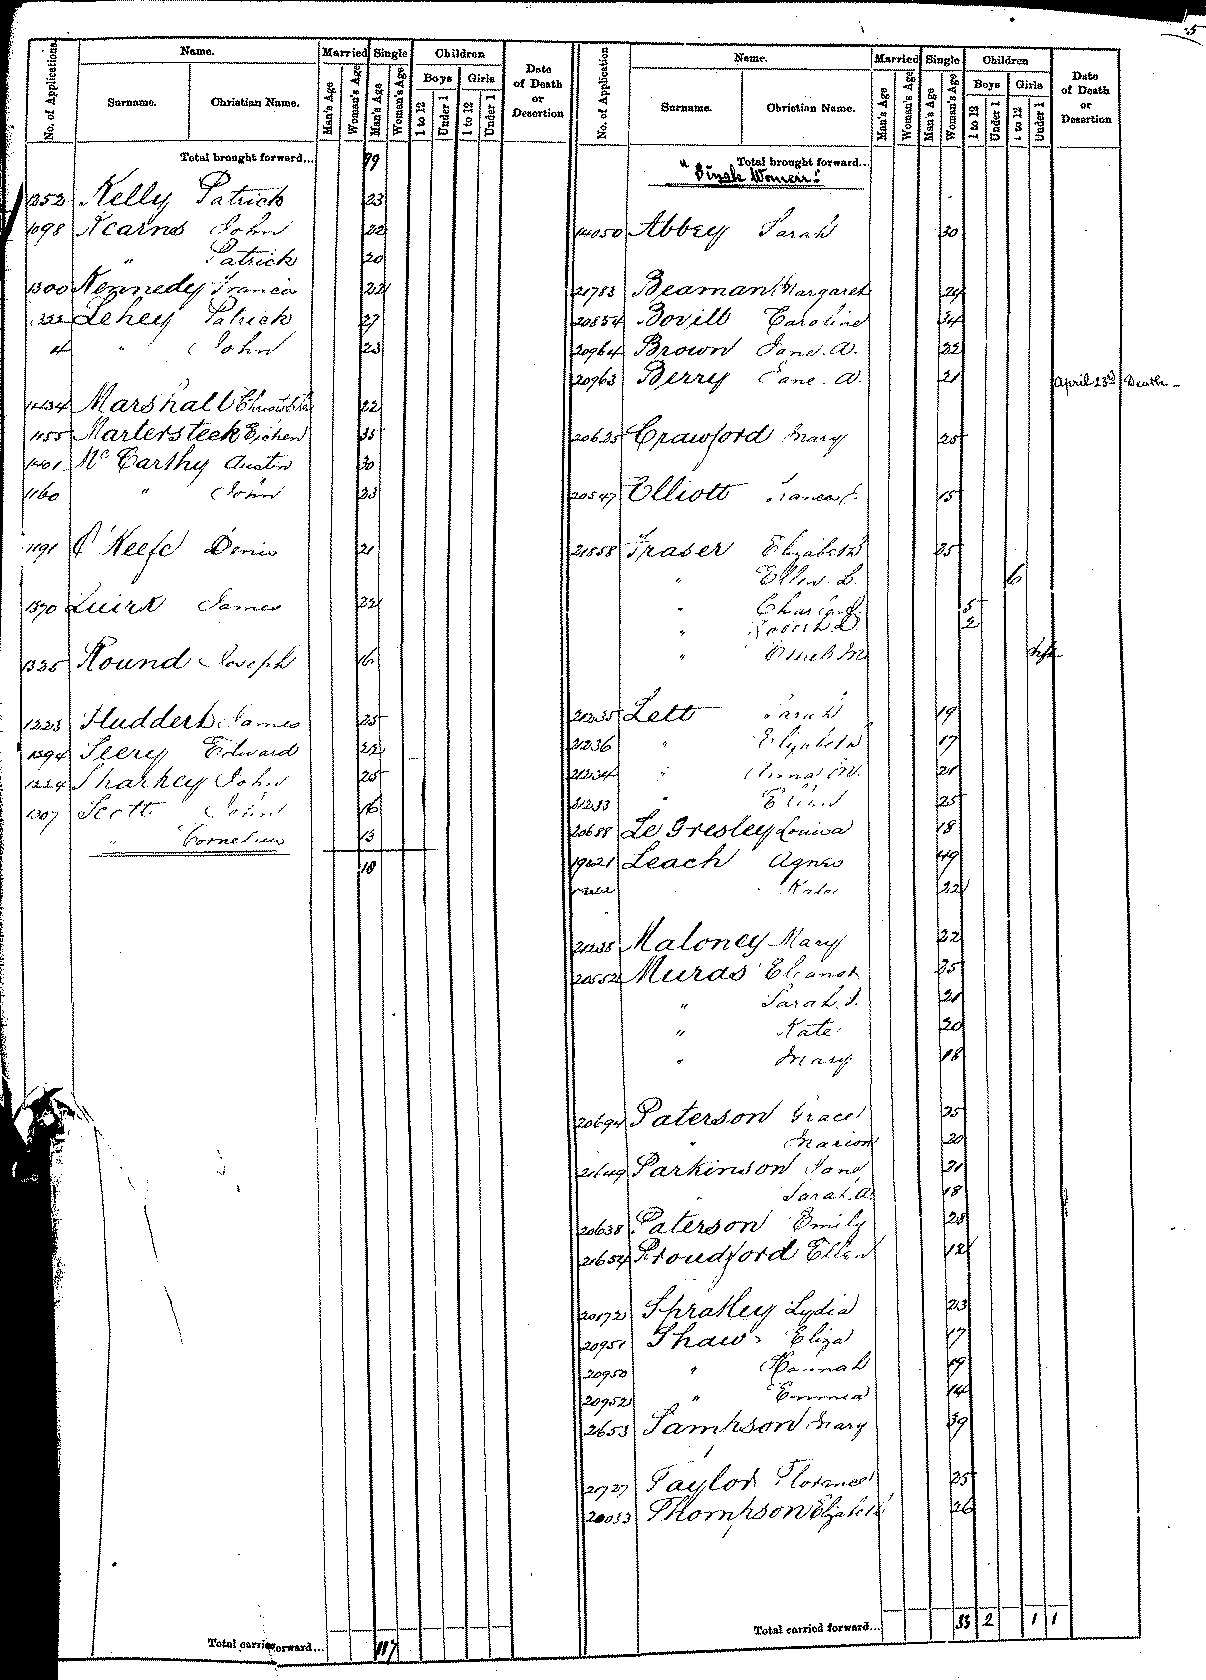 5
No. of Applications. Name. Married Single Children Date of Death or Desertion
Surname. Christian Name. Man's Age Woman's Age Man's Age Woman's Age Boys Girls
1 to 12 Under 1 1 to 12 Under 1
Total brought forward... 99
1252 Kelly Patrick 23
1098 Kearns John 22
" Patrick 20
1300 Kennedy Francis 22
1222 Lehey Patrick 27
" " John 23
1434 Marshall 22
1155 Martersteck 35
1401 Mc Carthy Austin 30
1160 " John 23
1191 O'Keefe Denis 21
1370 Quirk James 22
1325 Round Joseph 16
1223 Studdert James 25
1394 Seery Edward 22
1224 Sharkey John 25
1307 Scott John 16
" Cornelius 13
18
Total carried forward... 117
No. of Application Name. Married Single Children Date of Death or Desertion
Surname. Christian Name. Man's Age Woman's Age Man's Age Woman's Age Boys Girls
1 to 12 Under 1 1 to 12 Under 1
Total brought forward...
"Single Women"
14050 Abbey Sarah 30
21783 Beaman Margaret 24
20854 Bovill Caroline 34
20964 Brown Jane. A. 22
20963 Berry Jane. A. 21 April 23rd Death
20625 Crawford Mary 25
20547 Elliott Frances 15
21858 Fraser Elizabeth 35
" Ellen. B. 6
" 5
" Robert 2
" M
21235 Lett Sarah 19
21236 " Elizabeth 17
21234 " Anna M. 21
21233 " 25
20688 Le Gresley Louisa 18
Leach Agnes 49
Kate 22
21238 Maloney Mary 22
20552 Muras Eleanor 25
" Sarah. J. 21
" Kate 20
" Mary 18
20694 Paterson Grace 25
" Marion 20
21649 Parkinson Jane 21
" Sarah. A. 18
20638 Paterson Emily 28
21654 Proudford Ellen 12
20172 Spratley Lydia 23
20951 Shaw Eliza 17
20950 " Hannah 19
20952 " Emma 14
2653 Sampson Mary 39
21727 Taylor Florence 25
20033 Thompson Elizabeth 26
Total carried forward... 33 2 1 1